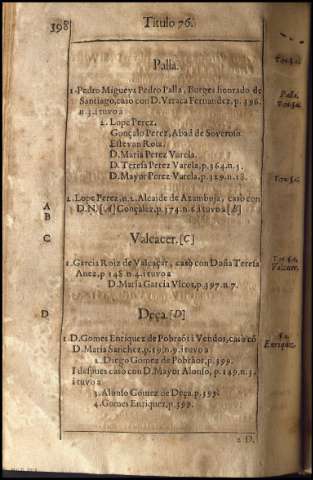 398
Titulo 76.
Palla.
1. Pedro Migueys Pedro Palla, Burges honrado de
Santiago, caso con D. Vrraca Fernandez, p. 396.
n. 3. i tuvo a
2. Lope Perez.
Gonçalo Perez, Abad de Soverosa
Estevan Roia.
D. Maria Perez Varela.
D. Teresa Perez Varela, p. 364. n. 5.
D. Mayor Perez Varela, p. 329. n. 18.
2. Lope Perez, n. 2. Alcaide de Azambuja, caso con
D. N. [A] Gonçalez, p. 374. n. 6. i tuvo a [B]
A
B
C
Valcacer. [C]
1. Garcia Roiz de Valcaçar, caso con Doña Teresa
Anez, p. 148. n. 4. i tuvo a
D. Maria Garcia Vicos, p. 397. n. 7.
Valcacer.
D
Deça. [D]
1. D. Gomes Enriquez de Pobraos i Vendos, caso cõ
D. Maria Sanchez, p. 19. n. 9. i tuvo a
2. Diego Gomez de Pobraos, p. 399.
I despues caso con D. Mayor Alonso, p. 149. n. 3.
i tuvo a
3. Alonso Gomez de Deça, p. 399.
4. Gomes Enriquez, p. 399.
Enriquez
2. D.